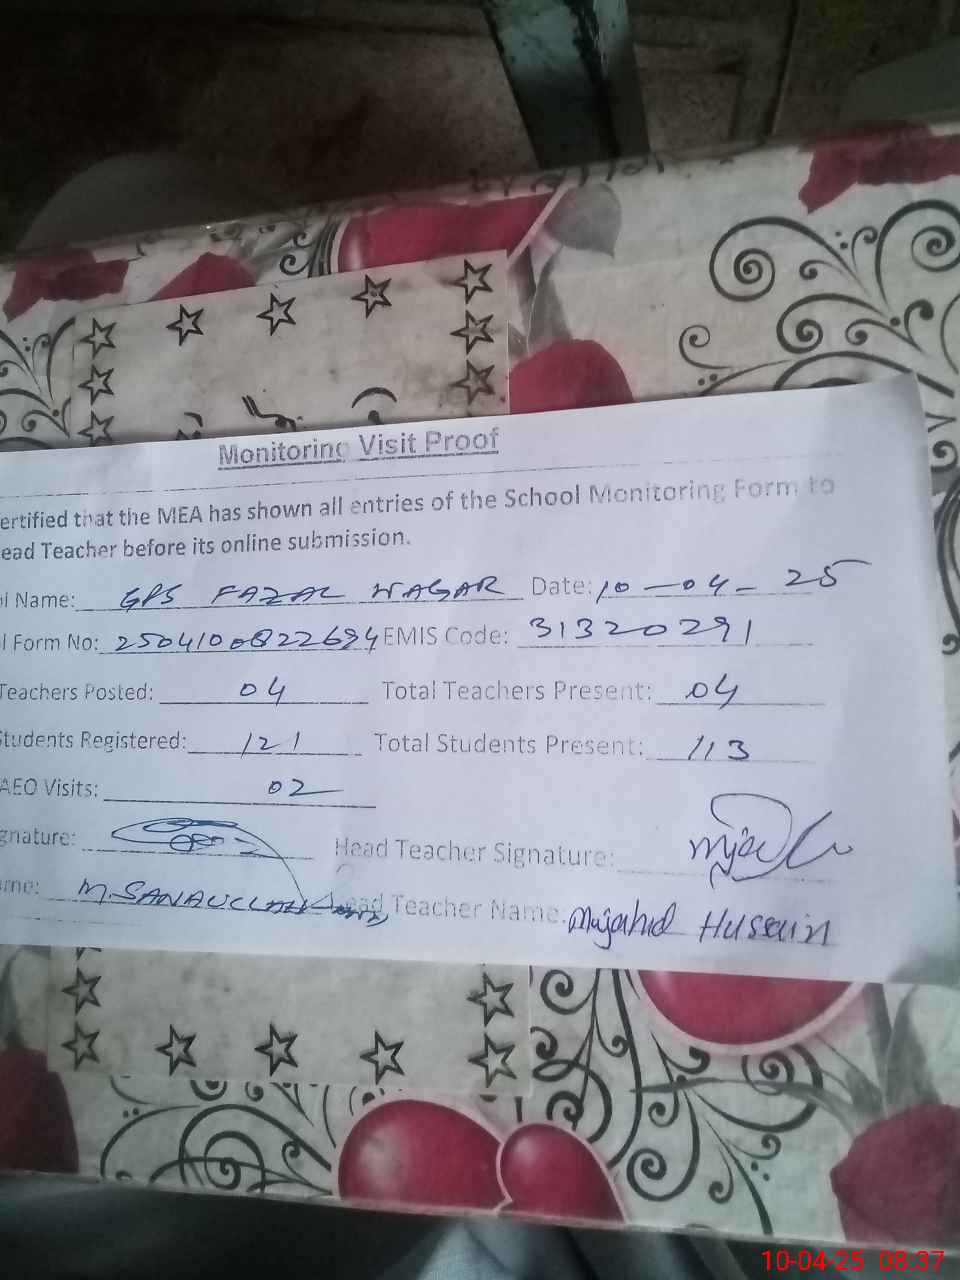 Monitoring Visit Proof
ertified that the MEA has shown all entries of the School Monitoring Form to
ead Teacher before its online submission.
ol Name: GPS FAZAL NAGAR Date: 10-04-25
l Form No: 2504100822694 EMIS Code: 31320291
Teachers Posted: 04 Total Teachers Present: 04
Students Registered: 121 Total Students Present: 113
AEO Visits: 02
gnature: Head Teacher Signature:
me: M. SANAULLAH Head Teacher Name: Mujahid Hussain
10-04-25 08:37